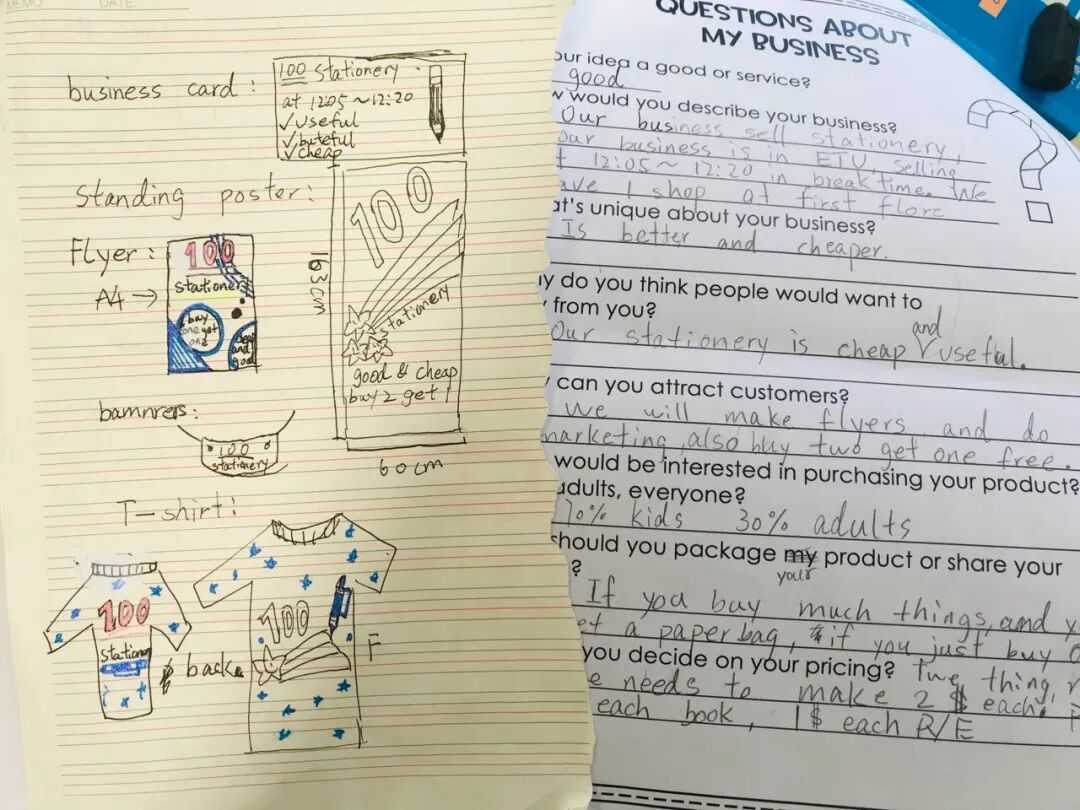 MEMO
DATE
business card :
100 Stationery
at 12:05 ~ 12:20
✓useful
✓buteful
✓cheap
Standing poster:
100
stationery
good & cheap
buy 2 get 1
163cm
60cm
Flyer:
A4 →
100
stationery
buy
one get
one
cheap
and
good
bamnrers:
100
stationery
T-shirt:
100
station
back
100
F
QUESTIONS ABOUT
MY BUSINESS
our idea a good or service?
good
w would you describe your business?
Our business sell stationery,
our business is in ETU, selling
at 12:05 ~ 12:20 in break time. We
ave 1 shop at first flore
at's unique about your business?
Is better and cheaper.
y do you think people would want to
from you?
Our stationery is cheap and useful.
can you attract customers?
We will make flyers and do
marketing, also buy two get one free.
would be interested in purchasing your product?
adults, everyone?
70% kids 30% adults
should you package my your product or share your
?
If you buy much things, and y
et a paper bag, if you just buy
you decide on your pricing? Twe thing,
e needs to make 2 $ each.
each book, 1$ each R/E